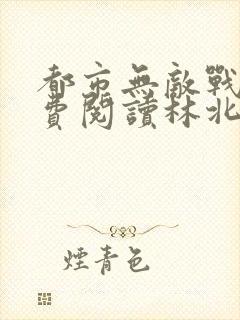 都市無敵戰
費閱讀林北
煙青色